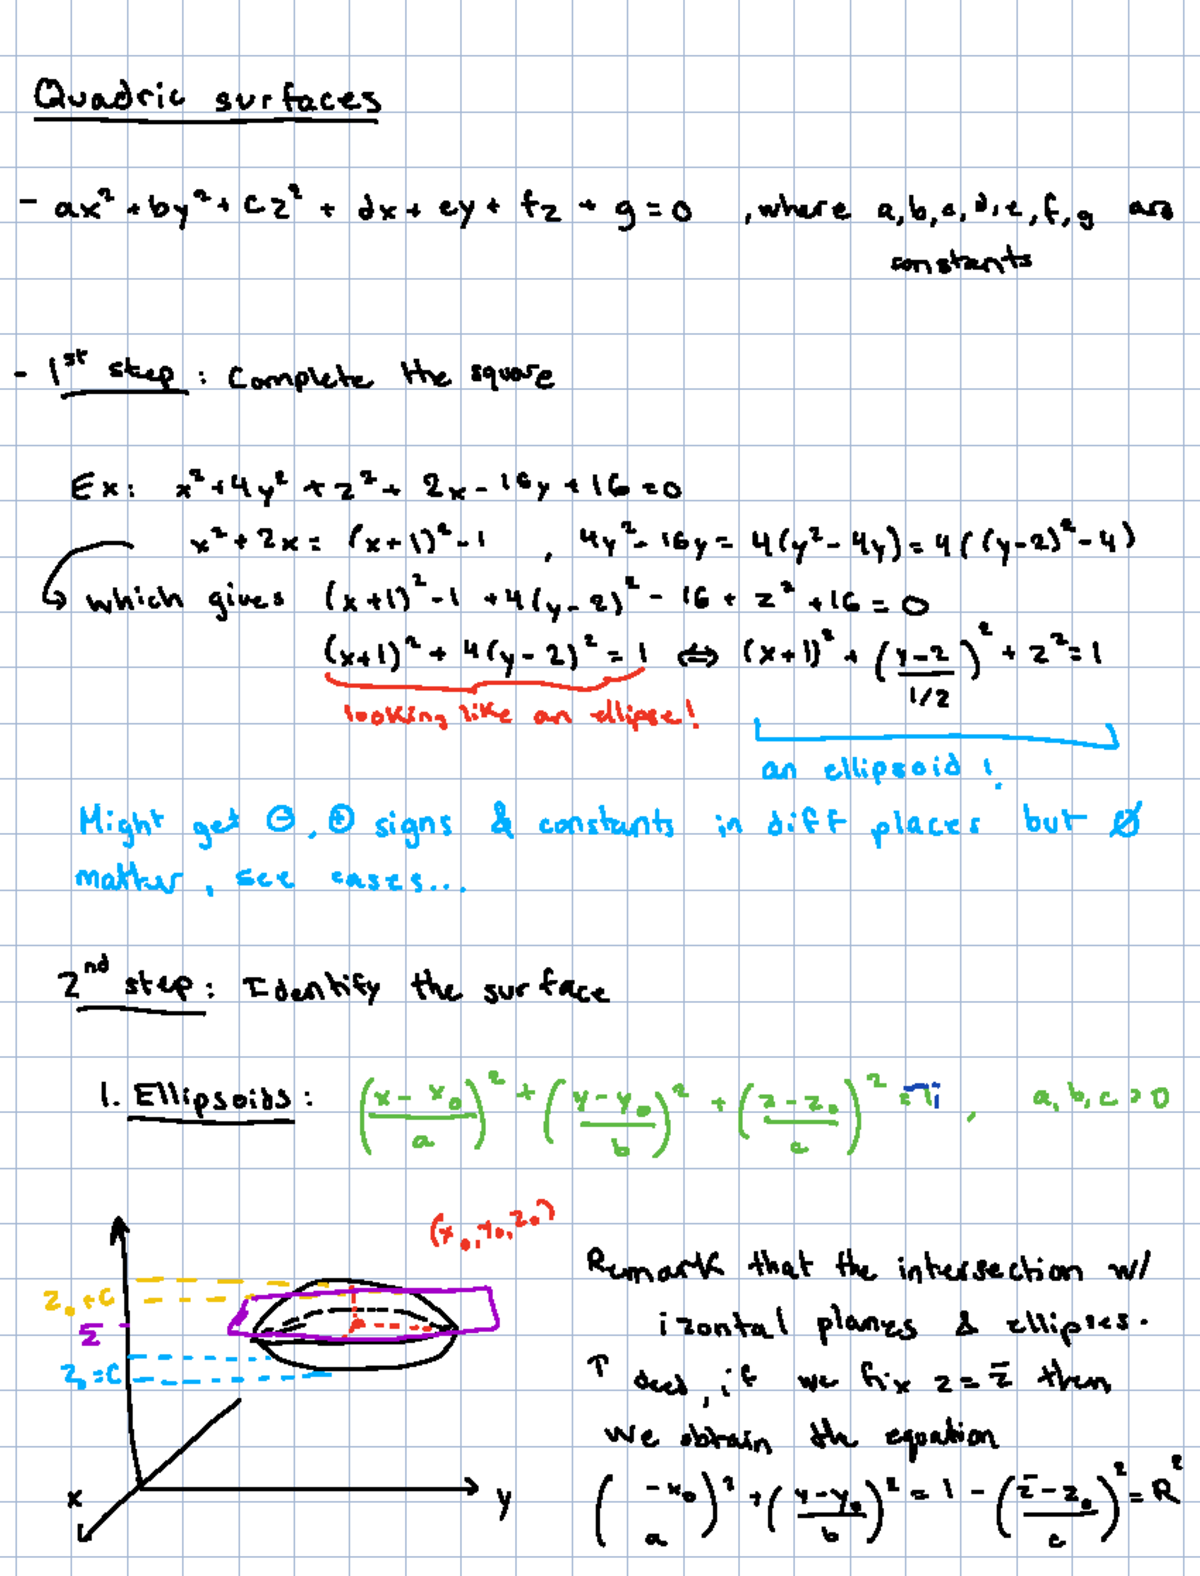 Quadric surfaces
- ax² + by² + cz² + dx + ey + fz + g = 0 , where a, b, c, d, e, f, g are
constants
- 1st step : Complete the square
Ex: x² + 4y² + z² + 2x - 16y + 16 = 0
x² + 2x = (x+1)² - 1 , 4y² - 16y = 4(y² - 4y) = 4((y-2)² - 4)
which gives (x+1)² - 1 + 4(y-2)² - 16 + z² + 16 = 0
(x+1)² + 4(y-2)² = 1 ⇔ (x+1)² + ((y-2)/(1/2))² + z² = 1
looking like an ellipse!
an ellipsoid !
Might get ⊖, ⊕ signs & constants in diff places but Ø
matter, see cases...
2nd step : Identify the surface
1. Ellipsoids : ((x - x₀)/a)² + ((y - y₀)/b)² + ((z - z₀)/c)² = 1 , a, b, c > 0
(x₀, y₀, z₀)
z₀ + c
z̄
z₀ = c
x
y
Remark that the intersection w/
izontal planes & ellipses.
deed, if we fix z = z̄ then
we obtain the equation
( - x₀ / a)² + ((y - y₀)/b)² = 1 - ((z̄ - z₀)/c)² = R²